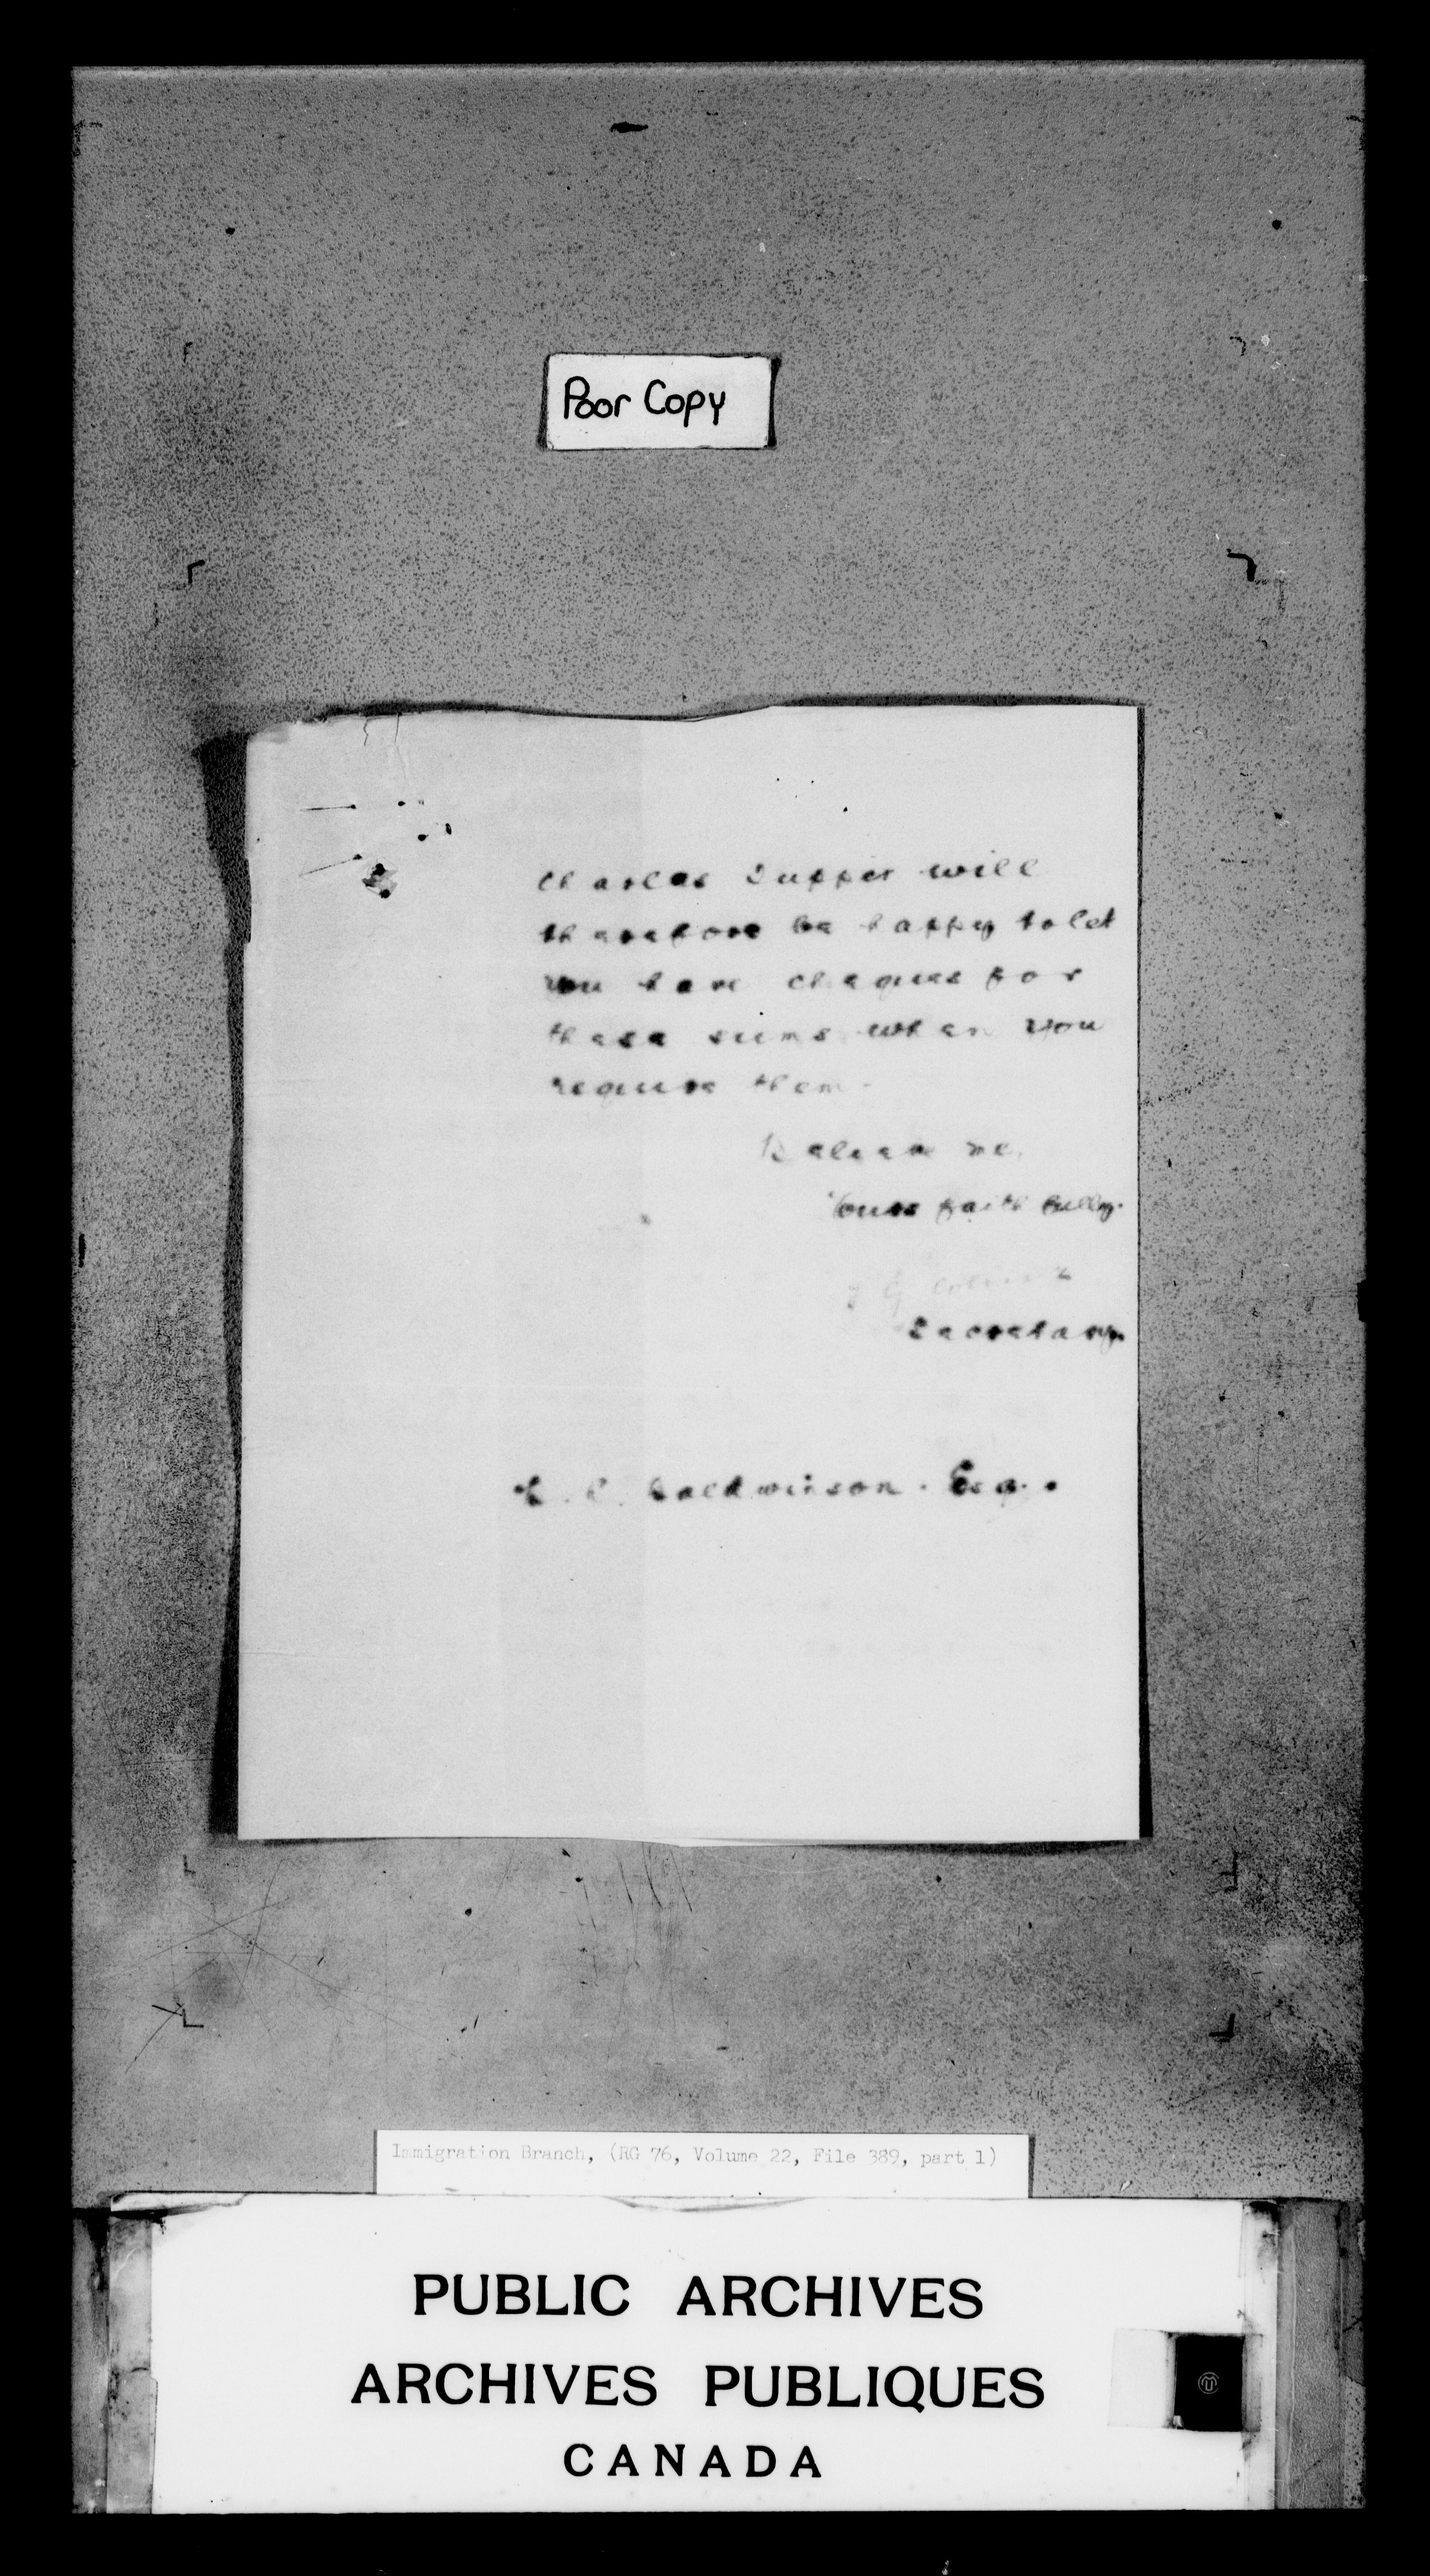 Poor Copy
Charles Tupper will
therefore be happy to let
you have cheques for
these sums when you
require them -
Believe me,
Yours faithfully.
J G Colmer
Secretary.
Baldwinson . Esq .
Immigration Branch, (RG 76, Volume 22, File 389, part 1)
PUBLIC ARCHIVES
ARCHIVES PUBLIQUES
CANADA